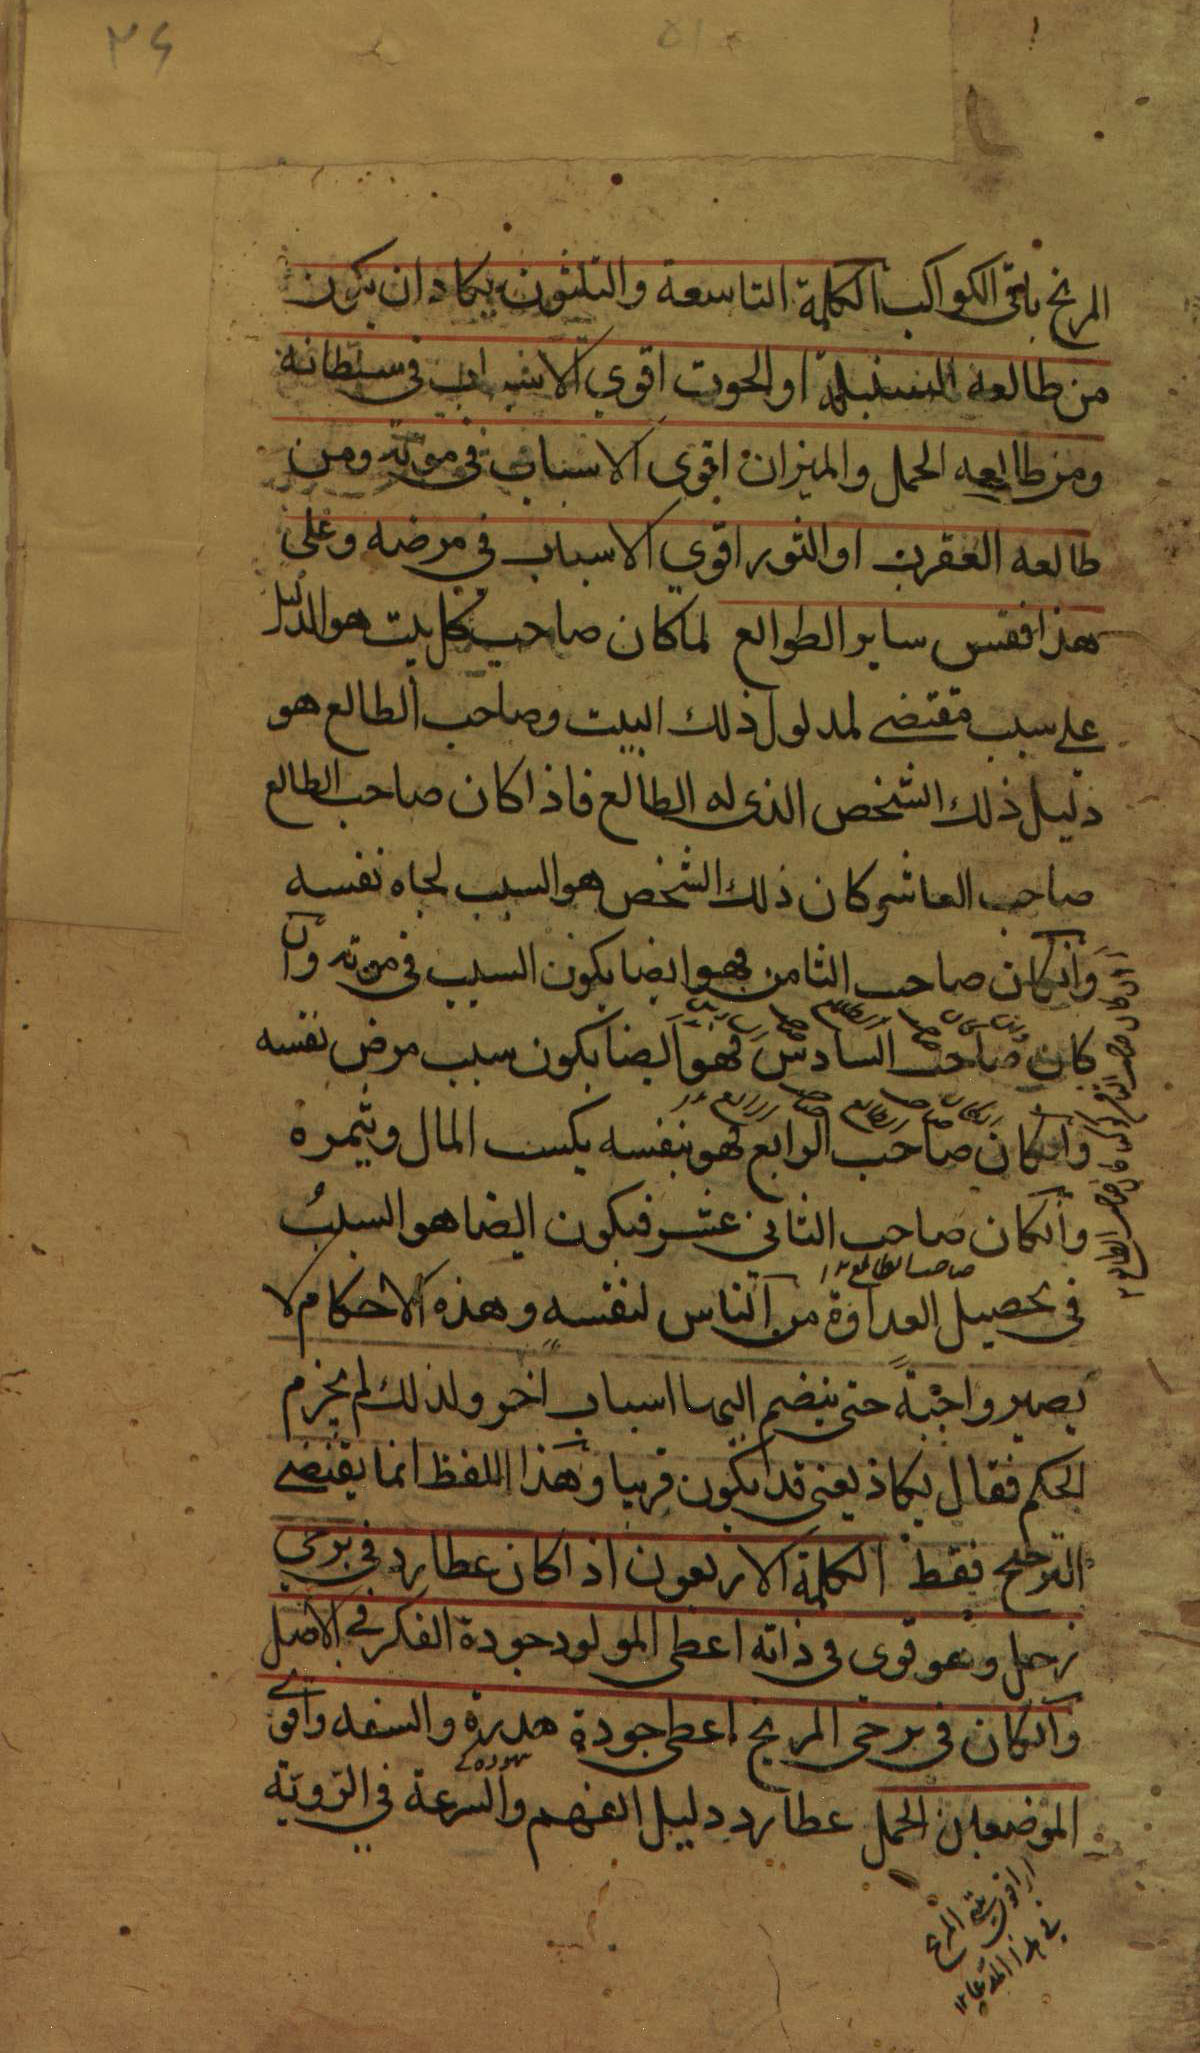 ٢٤
المريخ باقى الكواكب الكلمة التاسعة والثلثون يكاد ان يكون
من طالعه السنبلة او الحوت اقوي الاسباب فى سلطانه
ومن طالعه الحمل والميزان اقوى الاسباب فى موته ومن
طالعه العقرب او الثور اقوي الاسباب فى مرضه وعلى
هذا فقس ساير الطوالع لما كان صاحب كل بيت هو الدليل
على سبب مقتضى لمدلول ذلك البيت وصاحب الطالع هو
دليل ذلك الشخص الذى له الطالع فاذا كان صاحب الطالع
صاحب العاشر كان ذلك الشخص هو السبب لجاه نفسه
وانكان صاحب الثامن فهو ايضا يكون السبب فى موته وان
كان صاحب السادس فهو ايضا يكون سبب مرض نفسه
وانكان صاحب الرابع فهو بنفسه يكسب المال ويثمره
وانكان صاحب الثانى عشر فيكون ايضا هو السببُ
صاحب الطالع ١٢
فى تحصيل العداوة من الناس لنفسه وهذه الاحكام لا
يصير واجبة حتى ينضم اليها اسباب اخر ولذلك لم يجزم
الحكم فقال يكاد يعنى قد يكون قريبا وهذا اللفظ انما يقتضى
الترجيح فقط الكلمة الاربعون اذا كان عطارد فى برجى
زحل وهو قوى فى ذاته اعطى المولود جودة الفكر فى الاصل
وانكان فى برجى المريخ اعطى جودة هدرة والسفه واقوى
الموضعين الحمل عطارد دليل الفهم والسرعة فى الروية